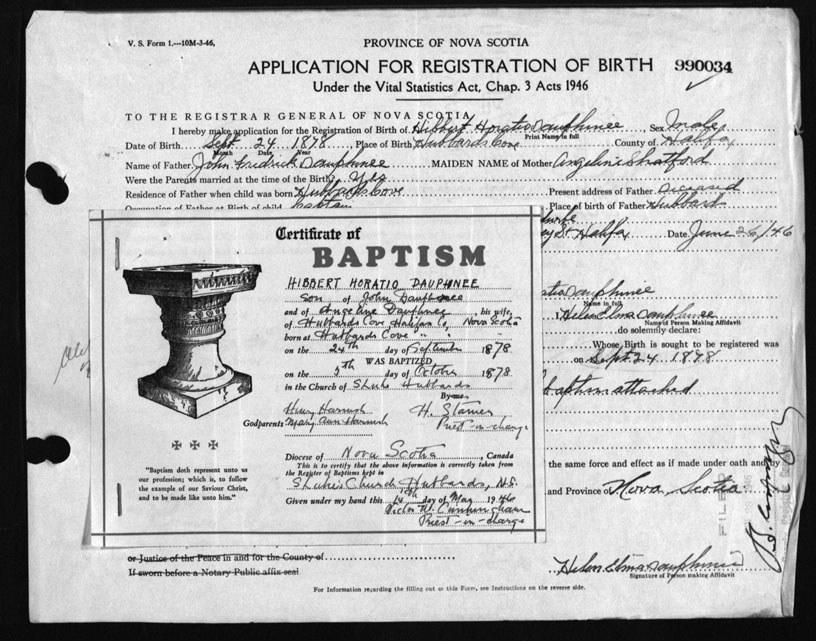 V. S. Form 1.---10M-3-46,
PROVINCE OF NOVA SCOTIA
APPLICATION FOR REGISTRATION OF BIRTH 990034
Under the Vital Statistics Act, Chap. 3 Acts 1946
TO THE REGISTRAR GENERAL OF NOVA SCOTIA
I hereby make application for the Registration of Birth of Hibbert Horatio Dauphinee, Sex Male
Print Name in full
Date of Birth Sept. 24 1878, Place of Birth Hubbards Cove County of Halifax
Month Date Year
Name of Father John Fredrick Dauphinee MAIDEN NAME of Mother Angeline Shatford
Were the Parents married at the time of the Birth? Yes
Residence of Father when child was born Hubbards Cove Present address of Father Deceased
Occupation of Father at Birth of child Captain Place of birth of Father Hubbard
St Halifax Date June 26/46
Certificate of
BAPTISM
HIBBERT HORATIO DAUPHINEE
Son of John Dauphinee
and of Angeline Dauphinee, his wife,
of Hubbards Cove, Halifax Co, Nova Scotia
born at Hubbards Cove
on the 24th day of September 1878
WAS BAPTIZED
on the 5th day of October 1878
in the Church of St Lukes Hubbards
By me
Henry Harnish H. Stamer
Godparents Mary Ann Harnish Priest-in-charge
Diocese of Nova Scotia, Canada
This is to certify that the above information is correctly taken from
the Register of Baptisms kept in
St Luke's Church Hubbards, N.S.
Given under my hand this 14th day of May 1946
Priest-in-charge
"Baptism doth represent unto us
our profession; which is, to follow
the example of our Saviour Christ,
and to be made like unto him."
Dauphinee
Name in full
I, Helen Elma Dauphinee
Name of Person Making Affidavit
do solemnly declare:
Whose Birth is sought to be registered was
on Sept 24 1878
baptism attached
the same force and effect as if made under oath and by
and Province of Nova Scotia
FILED
or Justice of the Peace in and for the County of
If sworn before a Notary Public affix seal
Helen Elma Dauphinee
Signature of Person making Affidavit
For Information regarding the filling out of this Form, see Instructions on the reverse side.